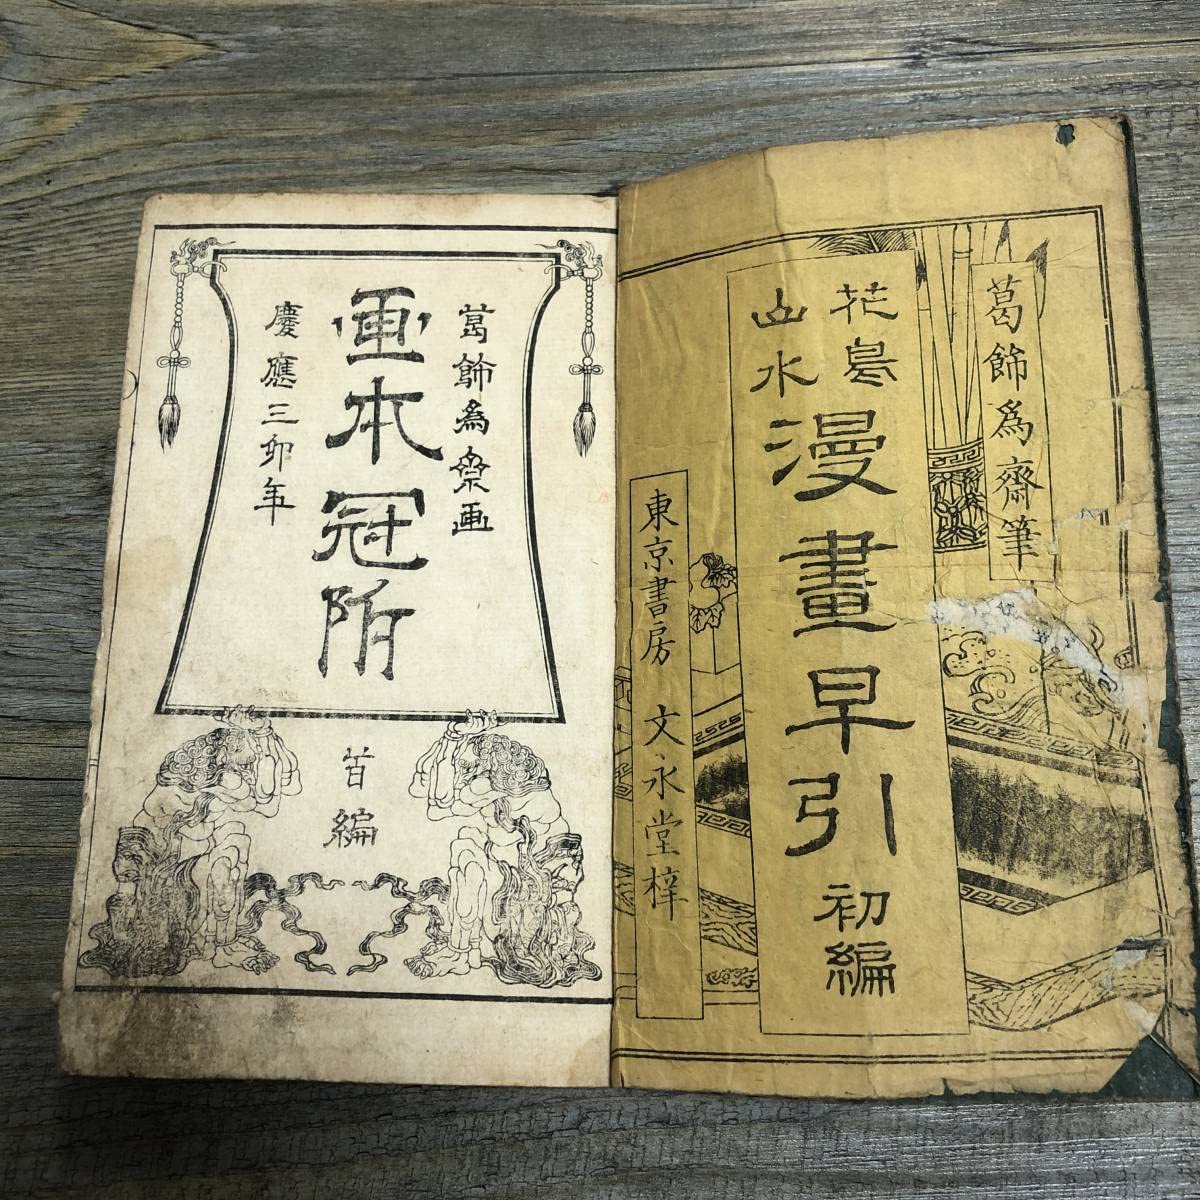 葛飾爲齋筆
花鳥
山水
漫畫早引 初編
東京書房 文永堂梓
葛飾為斎画
画本冠附
慶應三卯年
首編